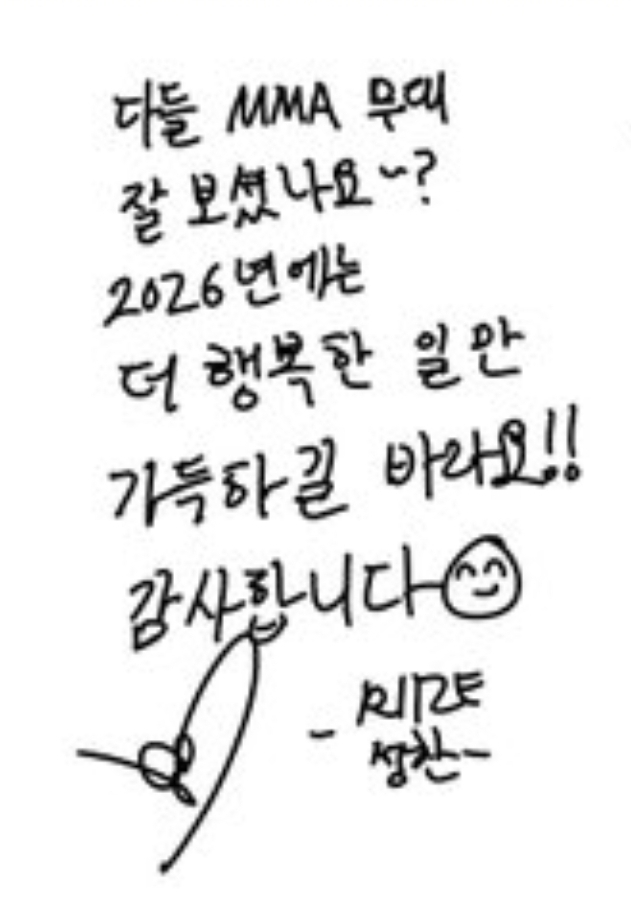 다들 MMA 무대
잘 보셨나요~?
2026년에는
더 행복한 일만
가득하길 바라요!!
감사합니다
- RIIZE
성찬-